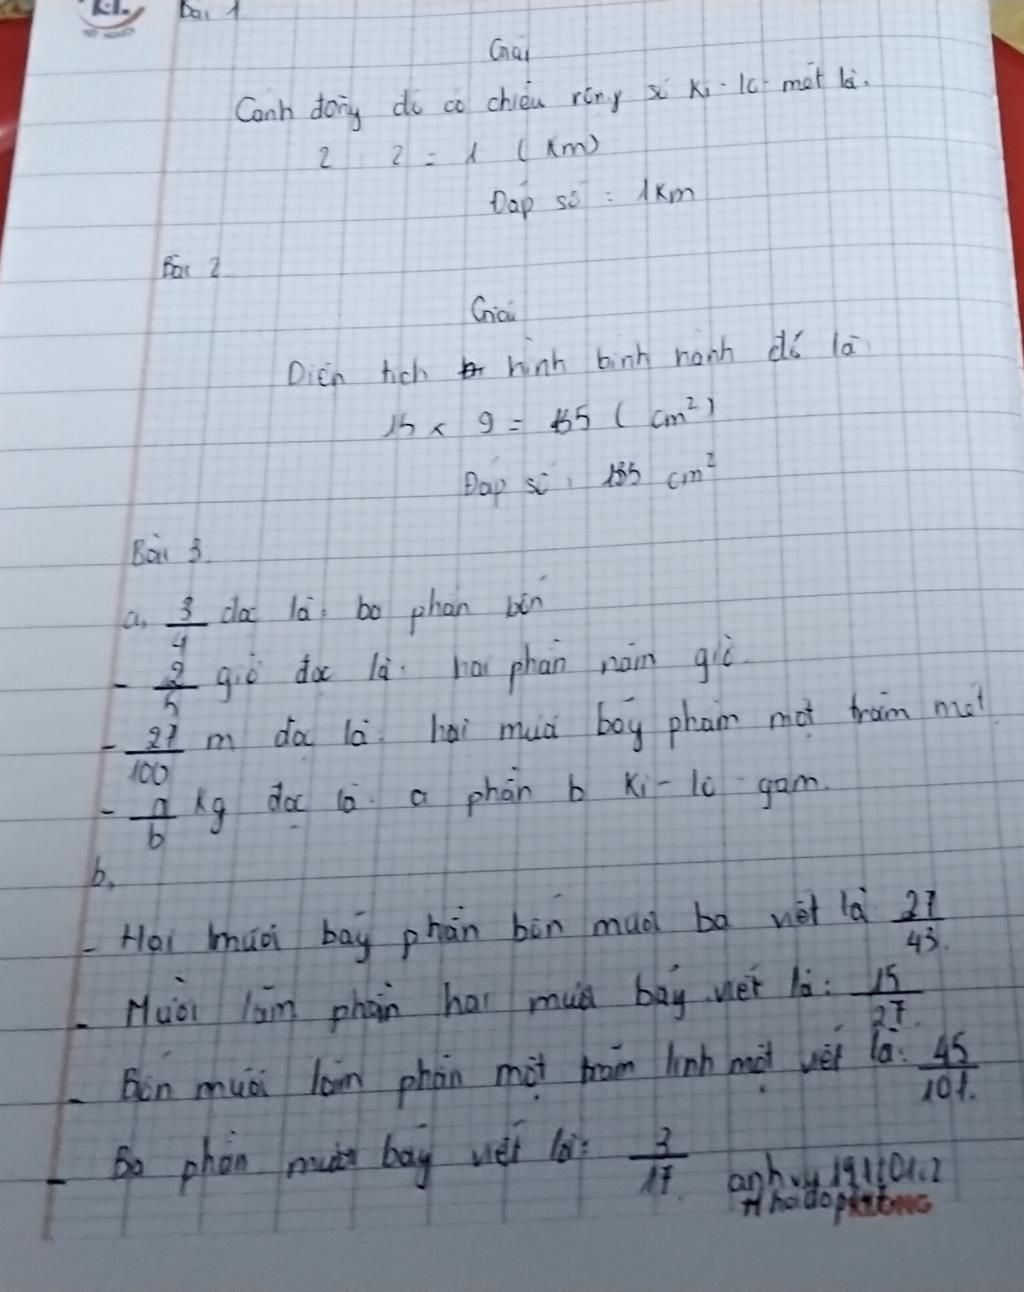 Bài 1
Giải
Cánh đồng đó có chiều rộng số ki-lô-mét là.
2 2 = 1 (km)
Đáp số: 1km
Bài 2
Giải
Diện tích hình bình hành đó là
15 x 9 = 135 (cm²)
Đáp số: 135 cm²
Bài 3.
a, 3/4 đọc là: ba phần bốn
- 2/5 giờ đọc là: hai phần năm giờ.
- 27/100 m đọc là: hai mươi bảy phần một trăm mét
- a/b kg đọc là: a phần b ki-lô-gam.
b,
- Hai mươi bảy phần bốn mươi ba viết là 27/43.
- Mười lăm phần hai mươi bảy viết là: 15/27.
- Bốn mươi lăm phần một trăm linh một viết là: 45/101.
- Ba phần mười bảy viết là: 3/17.